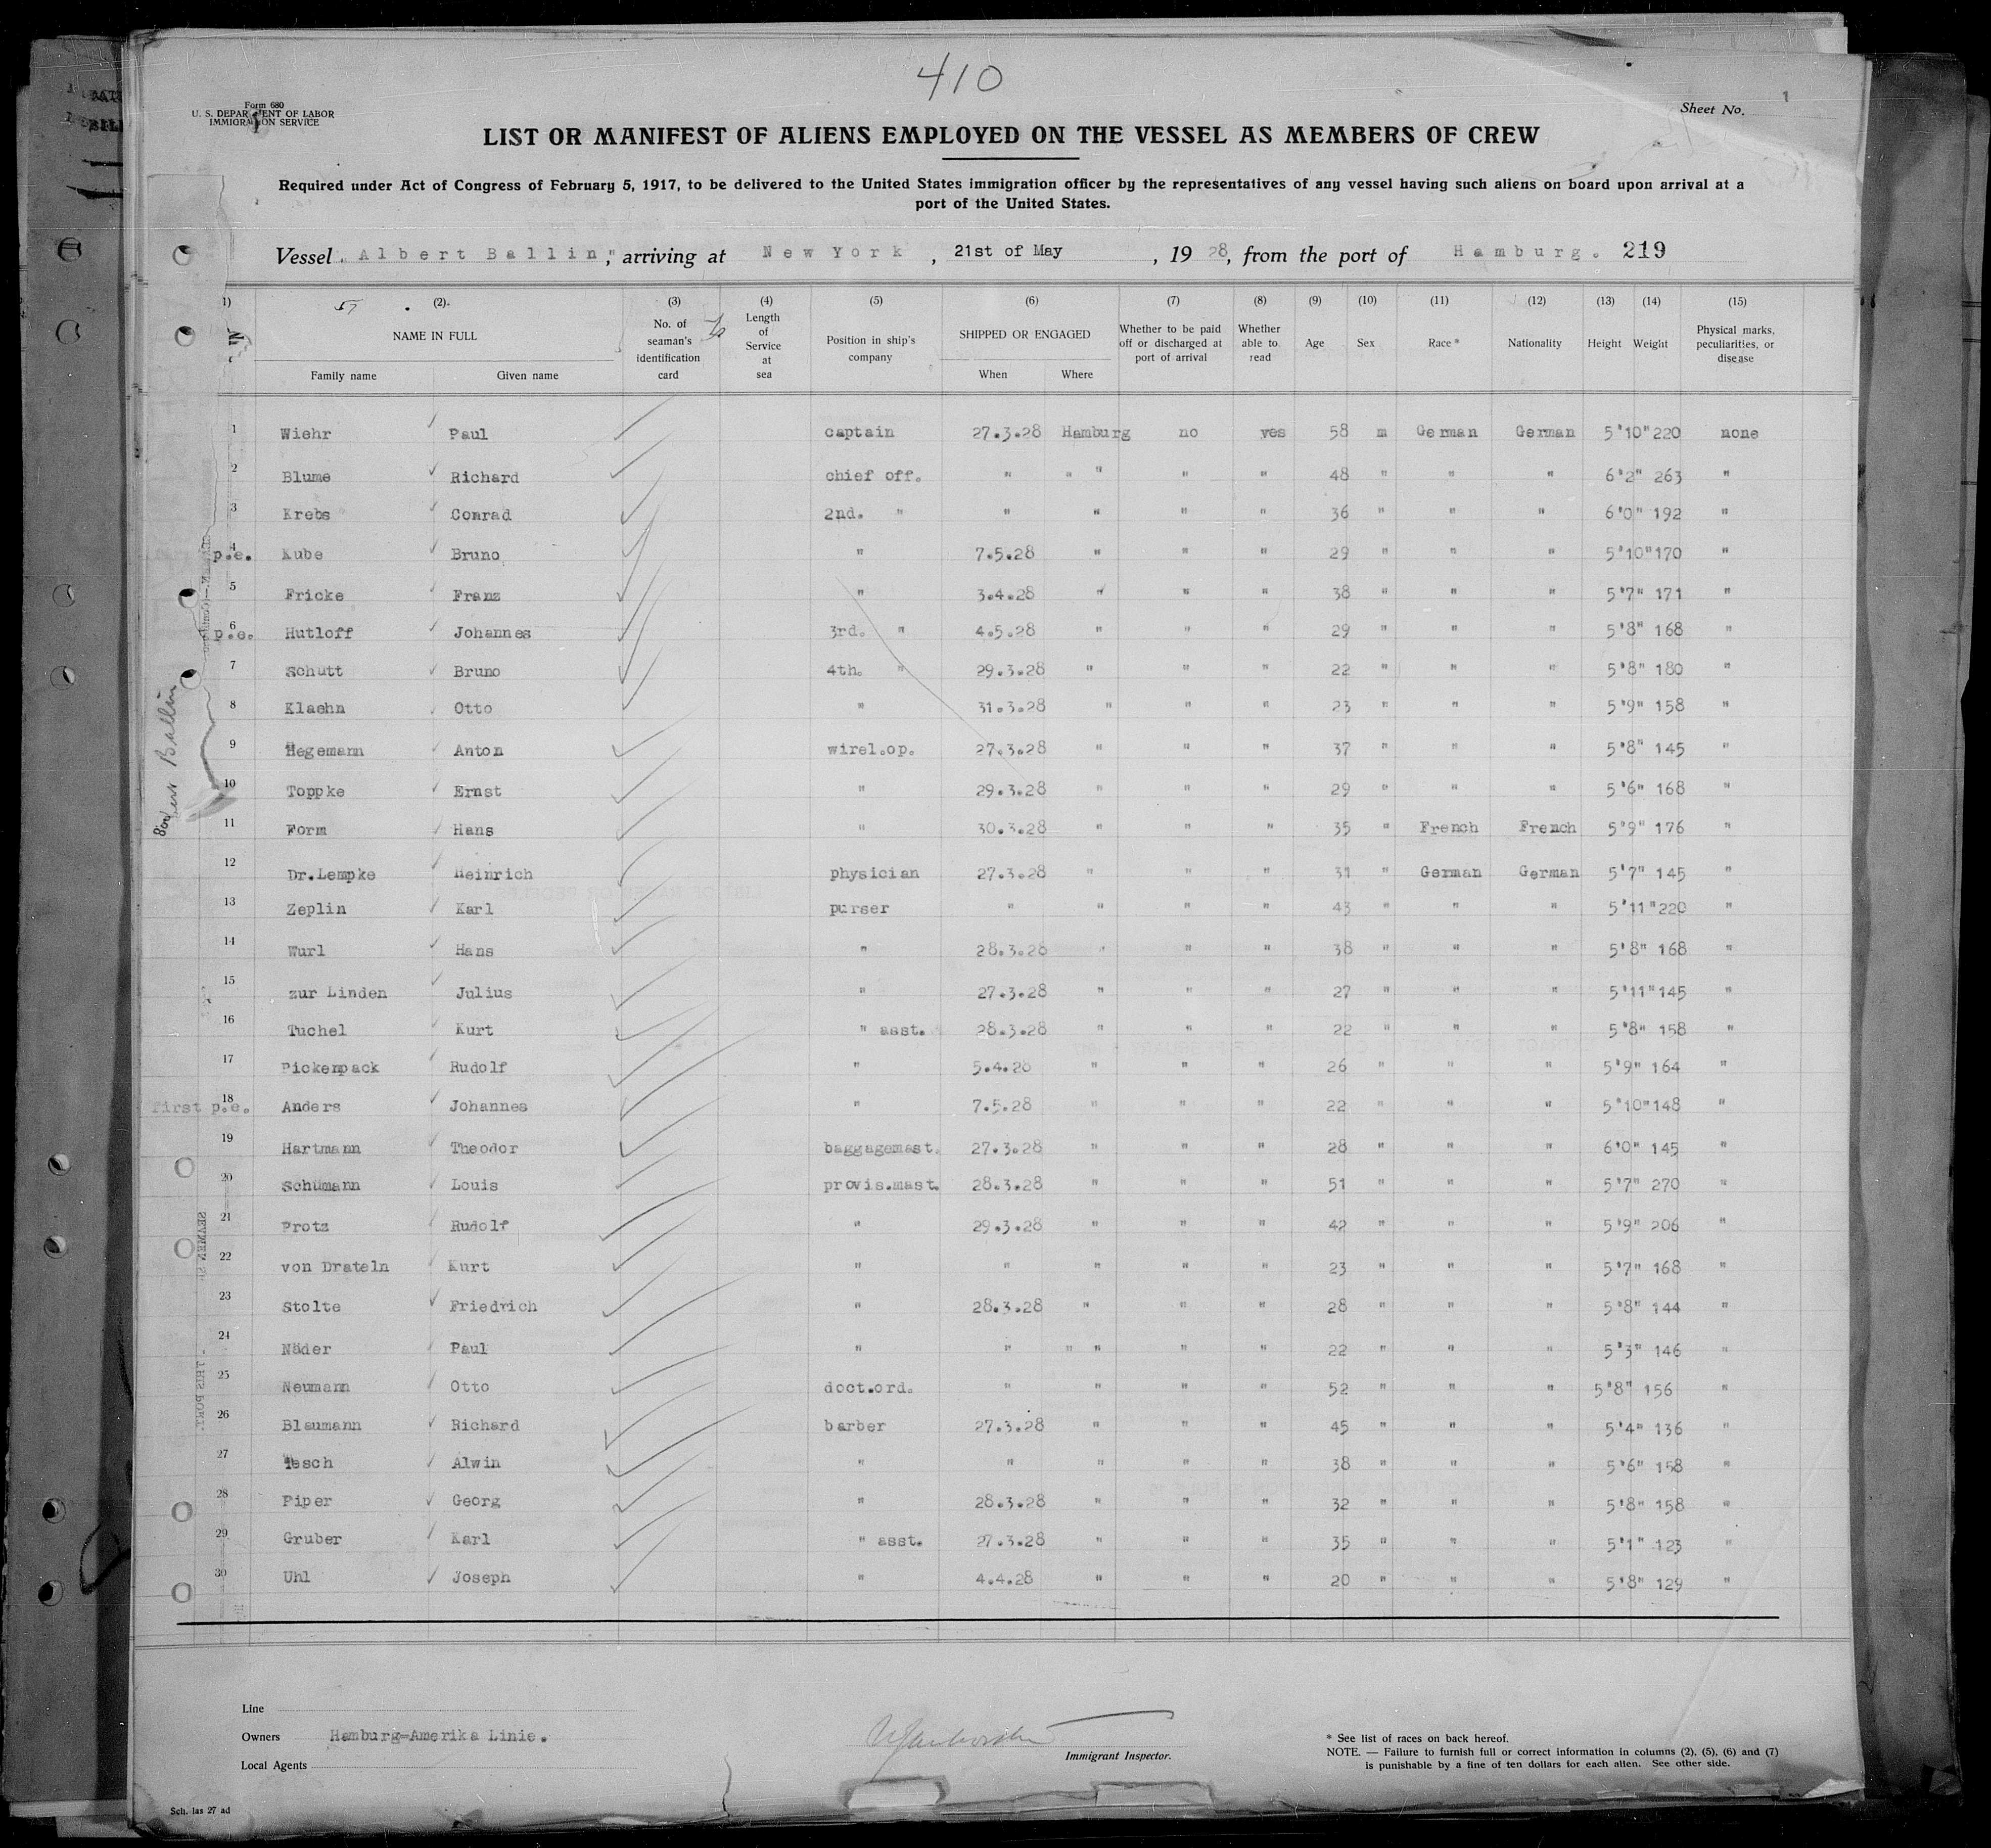 410
Form 680
U. S. DEPARTMENT OF LABOR
IMMIGRATION SERVICE
Sheet No. 1
LIST OR MANIFEST OF ALIENS EMPLOYED ON THE VESSEL AS MEMBERS OF CREW
Required under Act of Congress of February 5, 1917, to be delivered to the United States immigration officer by the representatives of any vessel having such aliens on board upon arrival at a
port of the United States.
Vessel "Albert Ballin", arriving at New York, 21st of May, 19 28, from the port of Hamburg. 219
1) (2) (3) (4) (5) (6) (7) (8) (9) (10) (11) (12) (13) (14) (15)
NAME IN FULL Family name Given name No. of seaman's identification card Length of Service at sea Position in ship's company SHIPPED OR ENGAGED When Where Whether to be paid off or discharged at port of arrival Whether able to read Age Sex Race* Nationality Height Weight Physical marks, peculiarities, or disease
1 Wiehr Paul captain 27.3.28 Hamburg no yes 58 m German German 5'10" 220 none
2 Blume Richard chief off. " " " " " 48 " " " 6'2" 263 "
3 Krebs Conrad 2nd. " " " " " 36 " " " 6'0" 192 "
p.e. 4 Kube Bruno " 7.5.28 " " " 29 " " " 5'10" 170 "
5 Fricke Franz " 3.4.28 " " " 38 " " " 5'7" 171 "
p.e. 6 Hutloff Johannes 3rd. " 4.5.28 " " " 29 " " " 5'8" 168 "
7 Schutt Bruno 4th. " 29.3.28 " " " 22 " " " 5'8" 180 "
8 Klaehn Otto " 31.3.28 " " " 23 " " " 5'9" 158 "
9 Hegemann Anton wirel.op. 27.3.28 " " " 37 " " " 5'8" 145 "
10 Toppke Ernst " 29.3.28 " " " 29 " " " 5'6" 168 "
11 Form Hans " 30.3.28 " " " 35 " French French 5'9" 176 "
12 Dr.Lempke Heinrich physician 27.3.28 " " " 31 " German German 5'7" 145 "
13 Zeplin Karl purser " " " " 43 " " " 5'11" 220 "
14 Wurl Hans " 28.3.28 " " " 38 " " " 5'8" 168 "
15 zur Linden Julius " 27.3.28 " " " 27 " " " 5'11" 145 "
16 Tuchel Kurt " asst. 28.3.28 " " " 22 " " " 5'8" 158 "
17 Pickenpack Rudolf " 5.4.28 " " " 26 " " " 5'9" 164 "
first p.e. 18 Anders Johannes " 7.5.28 " " " 22 " " " 5'10" 148 "
19 Hartmann Theodor baggagemast. 27.3.28 " " " 28 " " " 6'0" 145 "
20 Schümann Louis provis.mast. 28.3.28 " " " 51 " " " 5'7" 270 "
21 Protz Rudolf " 29.3.28 " " " 42 " " " 5'9" 206 "
22 von Drateln Kurt " " " " " 23 " " " 5'7" 168 "
23 Stolte Friedrich " 28.3.28 " " " 28 " " " 5'8" 144 "
24 Näder Paul " " " " " " 22 " " " 5'3" 146 "
25 Neumann Otto doct.ord. " " " " 52 " " " 5'8" 156 "
26 Blaumann Richard barber 27.3.28 " " " 45 " " " 5'4" 136 "
27 Tesch Alwin " " " " " 38 " " " 5'6" 158 "
28 Piper Georg " 28.3.28 " " " 32 " " " 5'8" 158 "
29 Gruber Karl " asst. 27.3.28 " " " 35 " " " 5'1" 123 "
30 Uhl Joseph " 4.4.28 " " " 20 " " " 5'8" 129 "
Line
Owners Hamburg-Amerika Linie.
Local Agents
Immigrant Inspector.
* See list of races on back hereof.
NOTE. — Failure to furnish full or correct information in columns (2), (5), (6) and (7)
is punishable by a fine of ten dollars for each alien. See other side.
Sch. las 27 ad